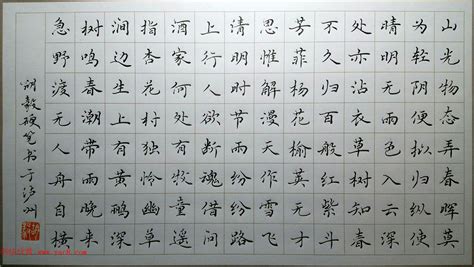 山光物态弄春晖莫
为轻阴便拟归纵使
晴明无雨色入云深
处亦沾衣草树知春
不久归百般红紫斗
芳菲杨花榆荚无才
思惟解漫天作雪飞
清明时节雨纷纷路
上行人欲断魂借问
酒家何处有牧童遥
指杏花村独怜幽草
涧边生上有黄鹂深
树鸣春潮带雨晚来
急野渡无人舟自横
胡毅硬笔书于泸州